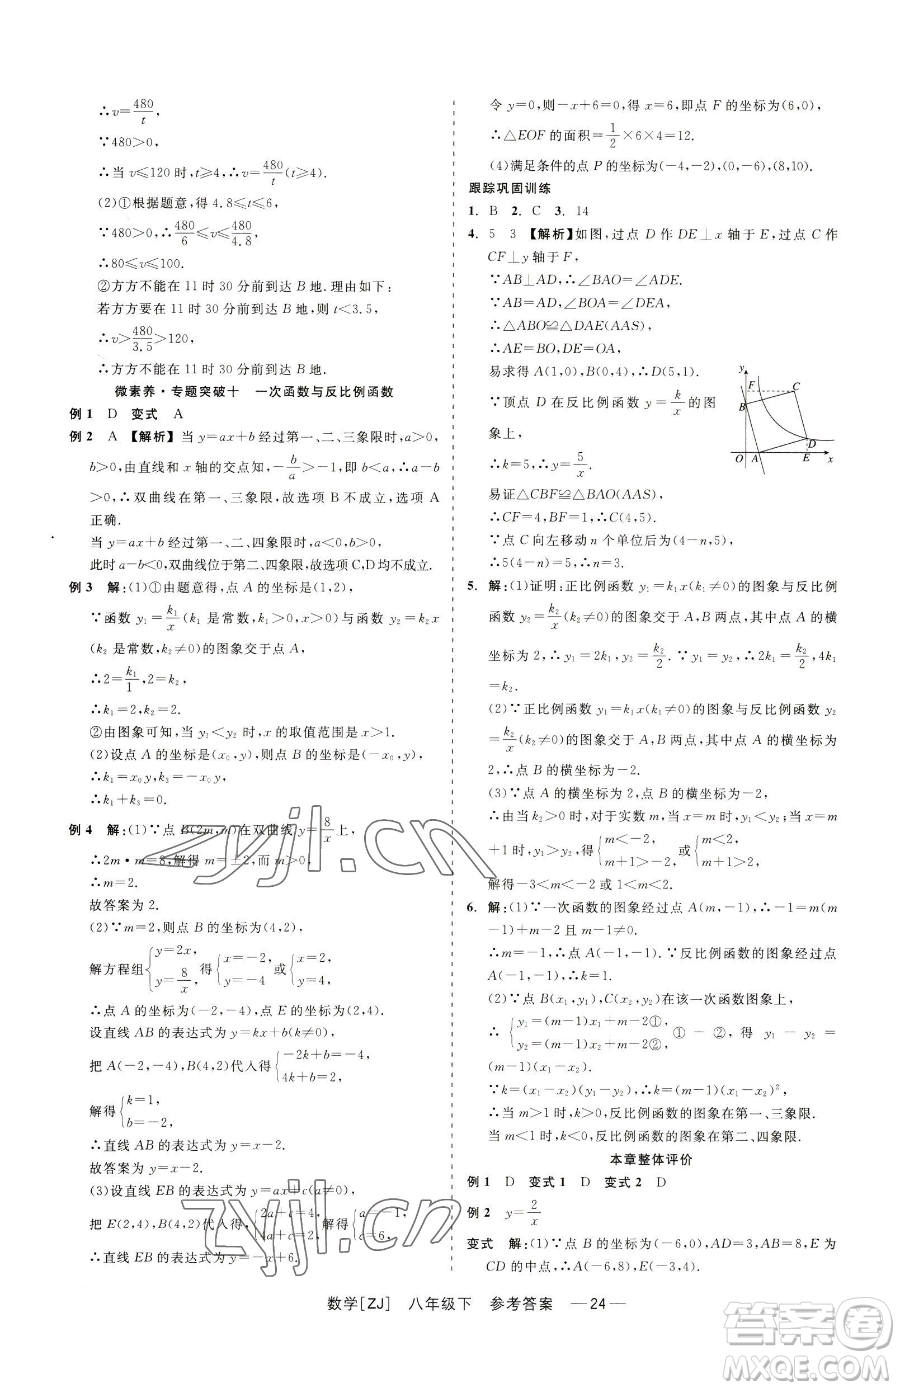 ∴v=480/t,
∵480>0,
∴当 v≤120 时,t≥4,∴v=480/t(t≥4).
(2)①根据题意,得 4.8≤t≤6,
∵480>0,∴480/6≤v≤480/4.8,
∴80≤v≤100.
②方方不能在 11 时 30 分前到达 B 地.理由如下:
若方方要在 11 时 30 分前到达 B 地,则 t<3.5,
∴v>480/3.5>120,
∴方方不能在 11 时 30 分前到达 B 地.
微素养·专题突破十 一次函数与反比例函数
例 1 D 变式 A
例 2 A 【解析】当 y=ax+b 经过第一、二、三象限时,a>0,
b>0,由直线和 x 轴的交点知,-b/a>-1,即 b<a,∴a-b>
0,∴双曲线在第一、三象限,故选项 B 不成立,选项 A
正确.
当 y=ax+b 经过第一、二、四象限时,a<0,b>0,
此时 a-b<0,双曲线位于第二、四象限,故选项C,D均不成立.
例 3 解:(1)①由题意得,点 A 的坐标是(1,2),
∵函数 y₁=k₁/x(k₁ 是常数,k₁>0,x>0)与函数 y₂=k₂x
(k₂ 是常数,k₂≠0)的图象交于点 A,
∴2=k₁/1,2=k₂,
∴k₁=2,k₂=2.
②由图象可知,当 y₁<y₂ 时,x 的取值范围是 x>1.
(2)设点 A 的坐标是(x₀,y),则点 B 的坐标是(-x₀,y),
∴k₁=x₀y,k₃=-x₀y,
∴k₁+k₃=0.
例 4 解:(1)∵点 B(2m,m)在双曲线 y=8/x上,
∴2m·m=8,解得 m=±2,而 m>0,
∴m=2.
故答案为 2.
(2)∵m=2,则点 B 的坐标为(4,2),
解方程组{y=2x, y=8/x, 得{x=-2, y=-4 或{x=2, y=4,
∴点 A 的坐标为(-2,-4),点 E 的坐标为(2,4).
设直线 AB 的表达式为 y=kx+b(k≠0),
把 A(-2,-4),B(4,2)代入得{-2k+b=-4, 4k+b=2,
解得{k=1, b=-2,
∴直线 AB 的表达式为 y=x-2.
故答案为 y=x-2.
(3)设直线 EB 的表达式为 y=ax+c(a≠0),
把 E(2,4),B(4,2)代入得,{2a+c=4, 4a+c=2, 解得{a=-1, c=6,
∴直线 EB 的表达式为 y=-x+6.
令 y=0,则-x+6=0,得 x=6,即点 F 的坐标为(6,0),
∴△EOF 的面积=1/2×6×4=12.
(4)满足条件的点 P 的坐标为(-4,-2),(0,-6),(8,10).
跟踪巩固训练
1. B 2. C 3. 14
4. 5 3 【解析】如图,过点 D 作 DE⊥x 轴于 E,过点 C 作
CF⊥y轴于 F,
∵AB⊥AD,∴∠BAO=∠ADE,
∵AB=AD,∠BOA=∠DEA,
∴△ABO≌△DAE(AAS),
∴AE=BO,DE=OA.
易求得 A(1,0),B(0,4),∴D(5,1).
∵顶点 D 在反比例函数 y=k/x的图
象上,
∴k=5,∴y=5/x.
易证△CBF≌△BAO(AAS),
∴CF=4,BF=1,∴C(4,5).
∵点 C 向左移动 n 个单位后为(4-n,5),
∴5(4-n)=5,∴n=3.
y
F
C
B
D
O
A
E
x
5. 解:(1)证明:正比例函数 y₁=k₁x(k₁≠0)的图象与反比
例函数 y₂=k₂/x(k₂≠0)的图象交于 A,B 两点,其中点 A 的横
坐标为 2,∴y₁=2k₁,y₂=k₂/2.∵y₁=y₂,∴2k₁=k₂/2,4k₁
=k₂.
(2)∵正比例函数 y₁=k₁x(k₁≠0)的图象与反比例函数 y₂
=k₂/x(k₂≠0)的图象交于 A,B 两点,其中点 A 的横坐标为
2,∴点 B 的横坐标为-2.
(3)∵点 A 的横坐标为 2,点 B 的横坐标为-2,
∴当 y₁>y₂ 时,对于实数 m,当 x=m 时,y₁<y₂;当 x=m
+1时,y₁>y₂,得{m<-2, m+1>-2 或{m<2, m+1>2,
解得-3<m<-2 或 1<m<2.
6. 解:(1)∵一次函数的图象经过点 A(m,-1),∴-1=m(m
-1)-m²,且 m-1≠0.
∴m=-1,∴点 A(-1,-1).∵反比例函数的图象经过点
A(-1,-1),∴k=1.
(2)∵点 B(x₁,y₁),C(x₂,y₂)在该一次函数图象上,
∴{y₁=(m-1)x₁-m²①, y₂=(m-1)x₂-m²②, ①-②,得 y₁-y₂=
(m-1)(x₁-x₂).
∵k=(x₁-x₂)(y₁-y₂)=(m-1)(x₁-x₂)²,x₁≠x₂,
∴当 m>1 时,k>0,反比例函数的图象在第一、三象限.
当 m<1 时,k<0,反比例函数的图象在第二、四象限.
本章整体评价
例 1 D 变式 1 D 变式 2 D
例 2 y=2/x
变式 解:(1)∵点 B 的坐标为(-6,0),AD=3,AB=8,E为
CD 的中点,∴A(-6,8),E(-3,4).
数学[ZJ] 八年级下 参考答案 —24—
zyjl.cn
zyjl.cn
答案圈
MXQE.COM